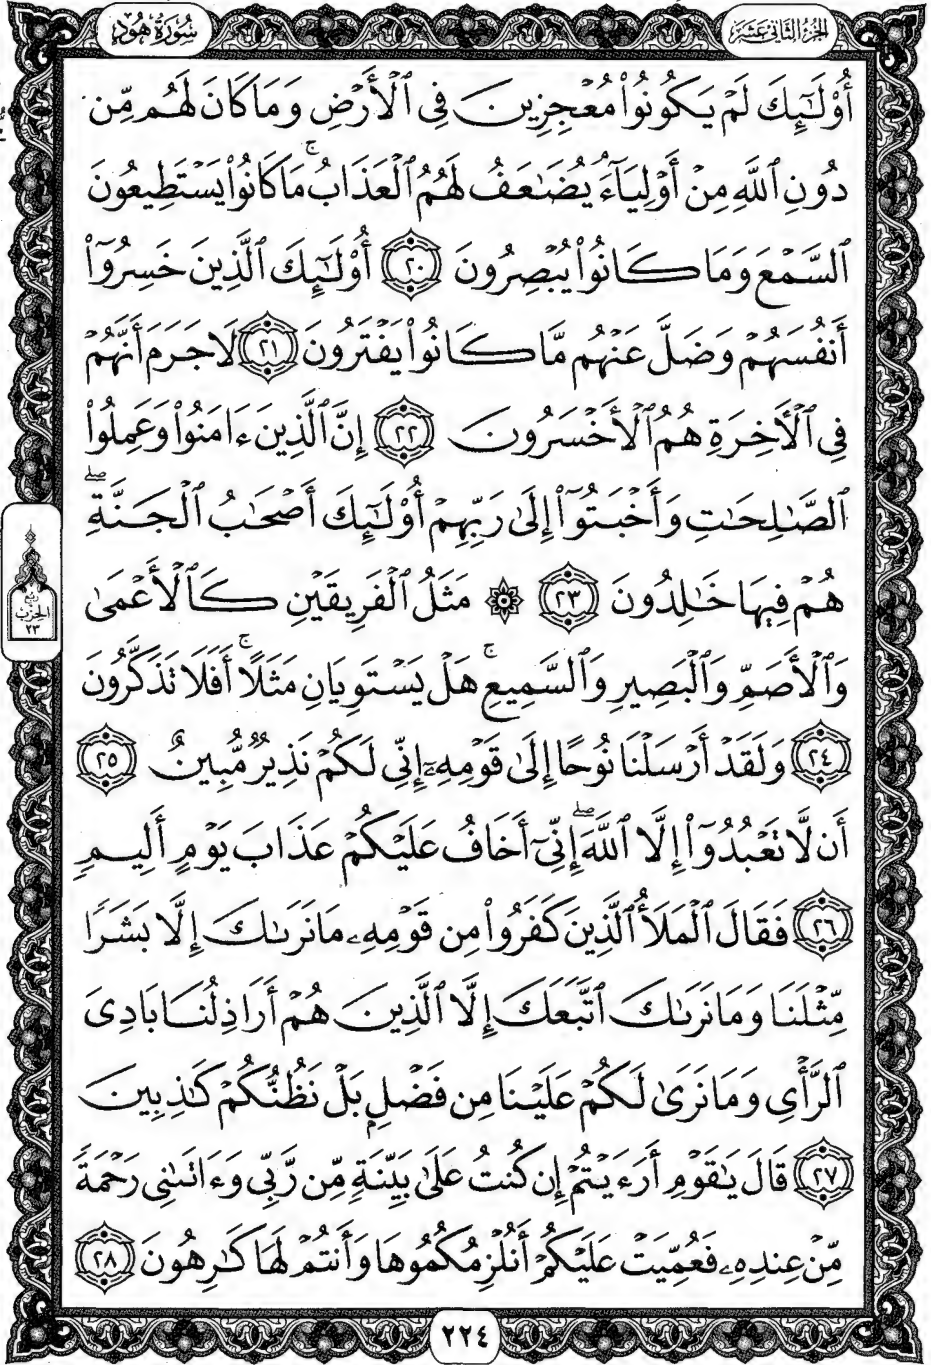 الجزء الثاني عشر
سورة هود
أُوْلَٰٓئِكَ لَمۡ يَكُونُواْ مُعۡجِزِينَ فِي ٱلۡأَرۡضِ وَمَا كَانَ لَهُم مِّن
دُونِ ٱللَّهِ مِنۡ أَوۡلِيَآءَۘ يُضَٰعَفُ لَهُمُ ٱلۡعَذَابُۚ مَا كَانُواْ يَسۡتَطِيعُونَ
ٱلسَّمۡعَ وَمَا كَانُواْ يُبۡصِرُونَ ٢٠ أُوْلَٰٓئِكَ ٱلَّذِينَ خَسِرُوٓاْ
أَنفُسَهُمۡ وَضَلَّ عَنۡهُم مَّا كَانُواْ يَفۡتَرُونَ ٢١ لَا جَرَمَ أَنَّهُمۡ
فِي ٱلۡأٓخِرَةِ هُمُ ٱلۡأَخۡسَرُونَ ٢٢ إِنَّ ٱلَّذِينَ ءَامَنُواْ وَعَمِلُواْ
ٱلصَّٰلِحَٰتِ وَأَخۡبَتُوٓاْ إِلَىٰ رَبِّهِمۡ أُوْلَٰٓئِكَ أَصۡحَٰبُ ٱلۡجَنَّةِۖ
هُمۡ فِيهَا خَٰلِدُونَ ٢٣ ۞ مَثَلُ ٱلۡفَرِيقَيۡنِ كَٱلۡأَعۡمَىٰ
وَٱلۡأَصَمِّ وَٱلۡبَصِيرِ وَٱلسَّمِيعِۚ هَلۡ يَسۡتَوِيَانِ مَثَلًاۚ أَفَلَا تَذَكَّرُونَ
٢٤ وَلَقَدۡ أَرۡسَلۡنَا نُوحًا إِلَىٰ قَوۡمِهِۦٓ إِنِّي لَكُمۡ نَذِيرٞ مُّبِينٌ ٢٥
أَن لَّا تَعۡبُدُوٓاْ إِلَّا ٱللَّهَۖ إِنِّيٓ أَخَافُ عَلَيۡكُمۡ عَذَابَ يَوۡمٍ أَلِيمٖ
٢٦ فَقَالَ ٱلۡمَلَأُ ٱلَّذِينَ كَفَرُواْ مِن قَوۡمِهِۦ مَا نَرَىٰكَ إِلَّا بَشَرٗا
مِّثۡلَنَا وَمَا نَرَىٰكَ ٱتَّبَعَكَ إِلَّا ٱلَّذِينَ هُمۡ أَرَاذِلُنَا بَادِيَ
ٱلرَّأۡيِ وَمَا نَرَىٰ لَكُمۡ عَلَيۡنَا مِن فَضۡلِۭ بَلۡ نَظُنُّكُمۡ كَٰذِبِينَ
٢٧ قَالَ يَٰقَوۡمِ أَرَءَيۡتُمۡ إِن كُنتُ عَلَىٰ بَيِّنَةٖ مِّن رَّبِّي وَءَاتَىٰنِي رَحۡمَةٗ
مِّنۡ عِندِهِۦ فَعُمِّيَتۡ عَلَيۡكُمۡ أَنُلۡزِمُكُمُوهَا وَأَنتُمۡ لَهَا كَٰرِهُونَ ٢٨
ربع
الحزب
٢٣
٢٢٤